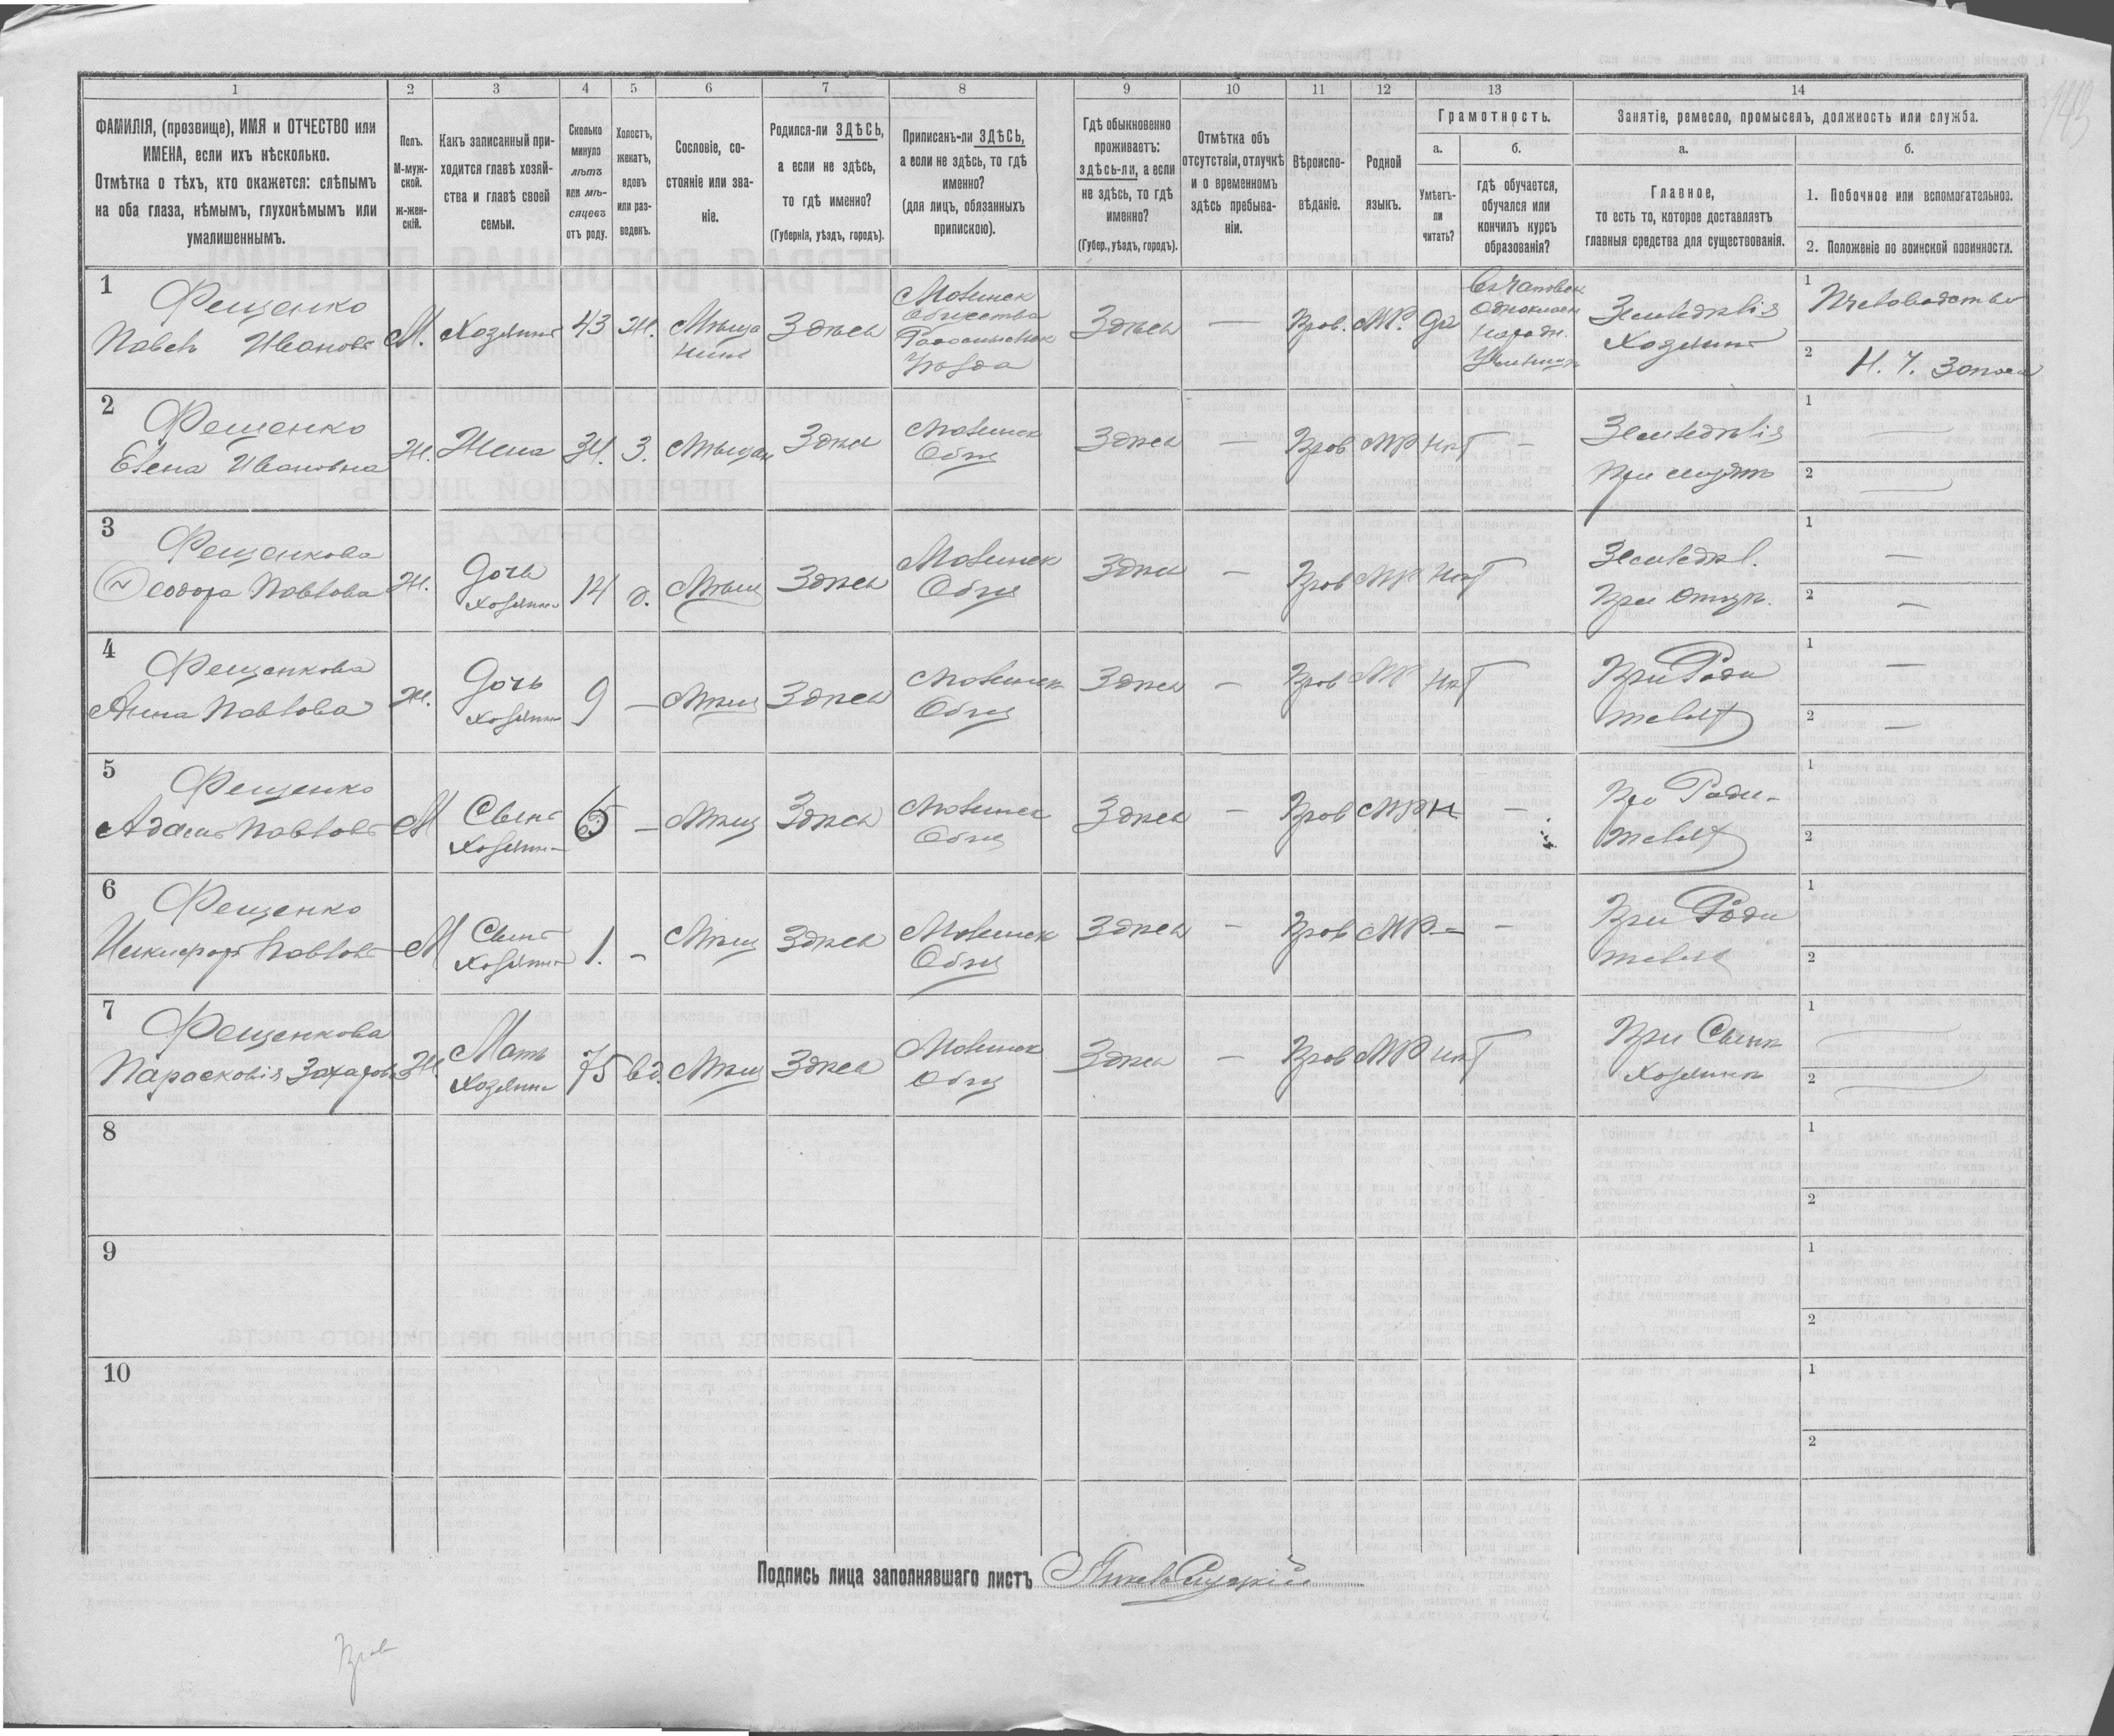 1 2 3 4 5 6 7 8 9 10 11 12 13 14
ФАМИЛІЯ, (прозвище), ИМЯ и ОТЧЕСТВО или
ИМЕНА, если ихъ нѣсколько.
Отмѣтка о тѣхъ, кто окажется: слѣпымъ
на оба глаза, нѣмымъ, глухонѣмымъ или
умалишеннымъ.
Полъ.
М-муж-
ской.
Ж-жен-
скій.
Какъ записанный при-
ходится главѣ хозяй-
ства и главѣ своей
семьи.
Сколько
минуло
лѣтъ
или мѣ-
сяцевъ
отъ роду.
Холостъ,
женатъ,
вдовъ
или раз-
веденъ.
Сословіе, со-
стояніе или зва-
ніе.
Родился-ли ЗДѢСЬ,
а если не здѣсь,
то гдѣ именно?
(Губернія, уѣздъ, городъ).
Приписанъ-ли ЗДѢСЬ,
а если не здѣсь, то гдѣ
именно?
(для лицъ, обязанныхъ
припискою).
Гдѣ обыкновенно
проживаетъ:
здѣсь-ли, а если
не здѣсь, то гдѣ
именно?
(Губер., уѣздъ, городъ).
Отмѣтка объ
отсутствіи, отлучкѣ
и о временномъ
здѣсь пребыва-
ніи.
Вѣроиспо-
вѣданіе.
Родной
языкъ.
Грамотность.
а.
Умѣетъ-
ли
читать?
б.
гдѣ обучается,
обучался или
кончилъ курсъ
образованія?
Занятіе, ремесло, промыселъ, должность или служба.
а.
Главное,
то есть то, которое доставляетъ
главныя средства для существованія.
б.
1. Побочное или вспомогательное.
2. Положеніе по воинской повинности.
1
Фещенко
Павелъ Ивановъ
М.
Хозяинъ
43
Ж.
Мѣща
нинъ
Здѣсь
Общества
Уѣзда
Здѣсь
—
Пров.
МР.
Да
Одноклас
народн.
Училищѣ
Земледѣлія
Хозяинъ
1
Пчеловодство
2
Н. Ч. Запаса
2
Фещенко
Елена Ивановна
Ж.
Жена
34.
З.
Мѣщан
Здѣсь
Общ
Здѣсь
—
Пров
МР
Нѣт
—
Земледѣлія
При мужѣ
1
—
2
—
3
Фещенкова
Феодора Павлова
Ж.
Дочь
Хозяина
14
д.
Мѣщ
Здѣсь
Общ
Здѣсь
—
Пров
МР
Нѣт
Земледѣл.
При Отцѣ.
1
—
2
—
4
Фещенкова
Анна Павлова
Ж.
Дочь
Хозяина
9
—
Мѣщ
Здѣсь
Общ
Здѣсь
—
Пров
МР
Нѣт
При Роди
телях
1
—
2
—
5
Фещенко
Адамъ Павловъ
М
Сынъ
Хозяина
—
Мѣщ
Здѣсь
Общ
Здѣсь
—
Пров
МР
Н
—
При Роди-
телях
1
2
6
Фещенко
Никифоръ Павловъ
М
Сынъ
Хозяина
1.
—
Мѣщ
Здѣсь
Общ
Здѣсь
—
Пров
МР.
—
—
При Роди
телях
1
2
7
Фещенкова
Парасковія Захарова
Ж.
Мать
Хозяина
75
вд.
Мѣщ
Здѣсь
Общ
Здѣсь
—
Пров
МР
Нѣт
При Сынѣ
Хозяинѣ
1
—
2
—
8
1
2
9
1
2
10
1
2
Подпись лица заполнявшаго листъ
Пров